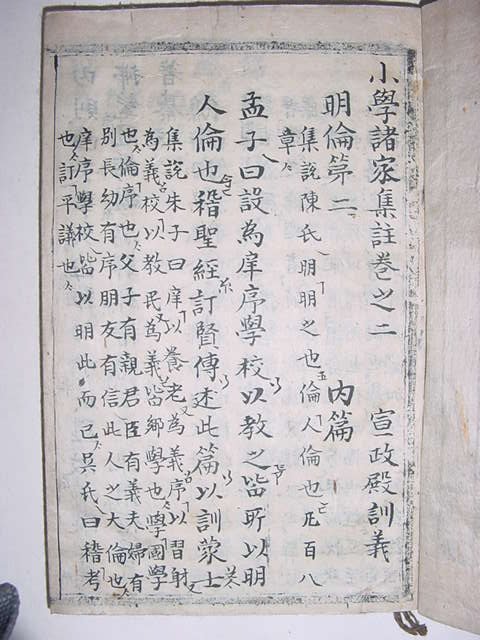 小學諸家集註卷之二　宣政殿訓義
明倫第二　內篇
集說陳氏曰明明之也倫人倫也凡百八
章
孟子曰設爲庠序學校以教之皆所以明
人倫也稽聖經訂賢傳述此篇以訓蒙士
集說朱子曰庠以養老爲義序以習射
爲義校以教民爲義皆鄉學也學國學
也倫序也父子有親君臣有義夫婦有
別長幼有序朋友有信此人之大倫也
庠序學校皆以明此而已吳氏曰稽考
也訂平議也